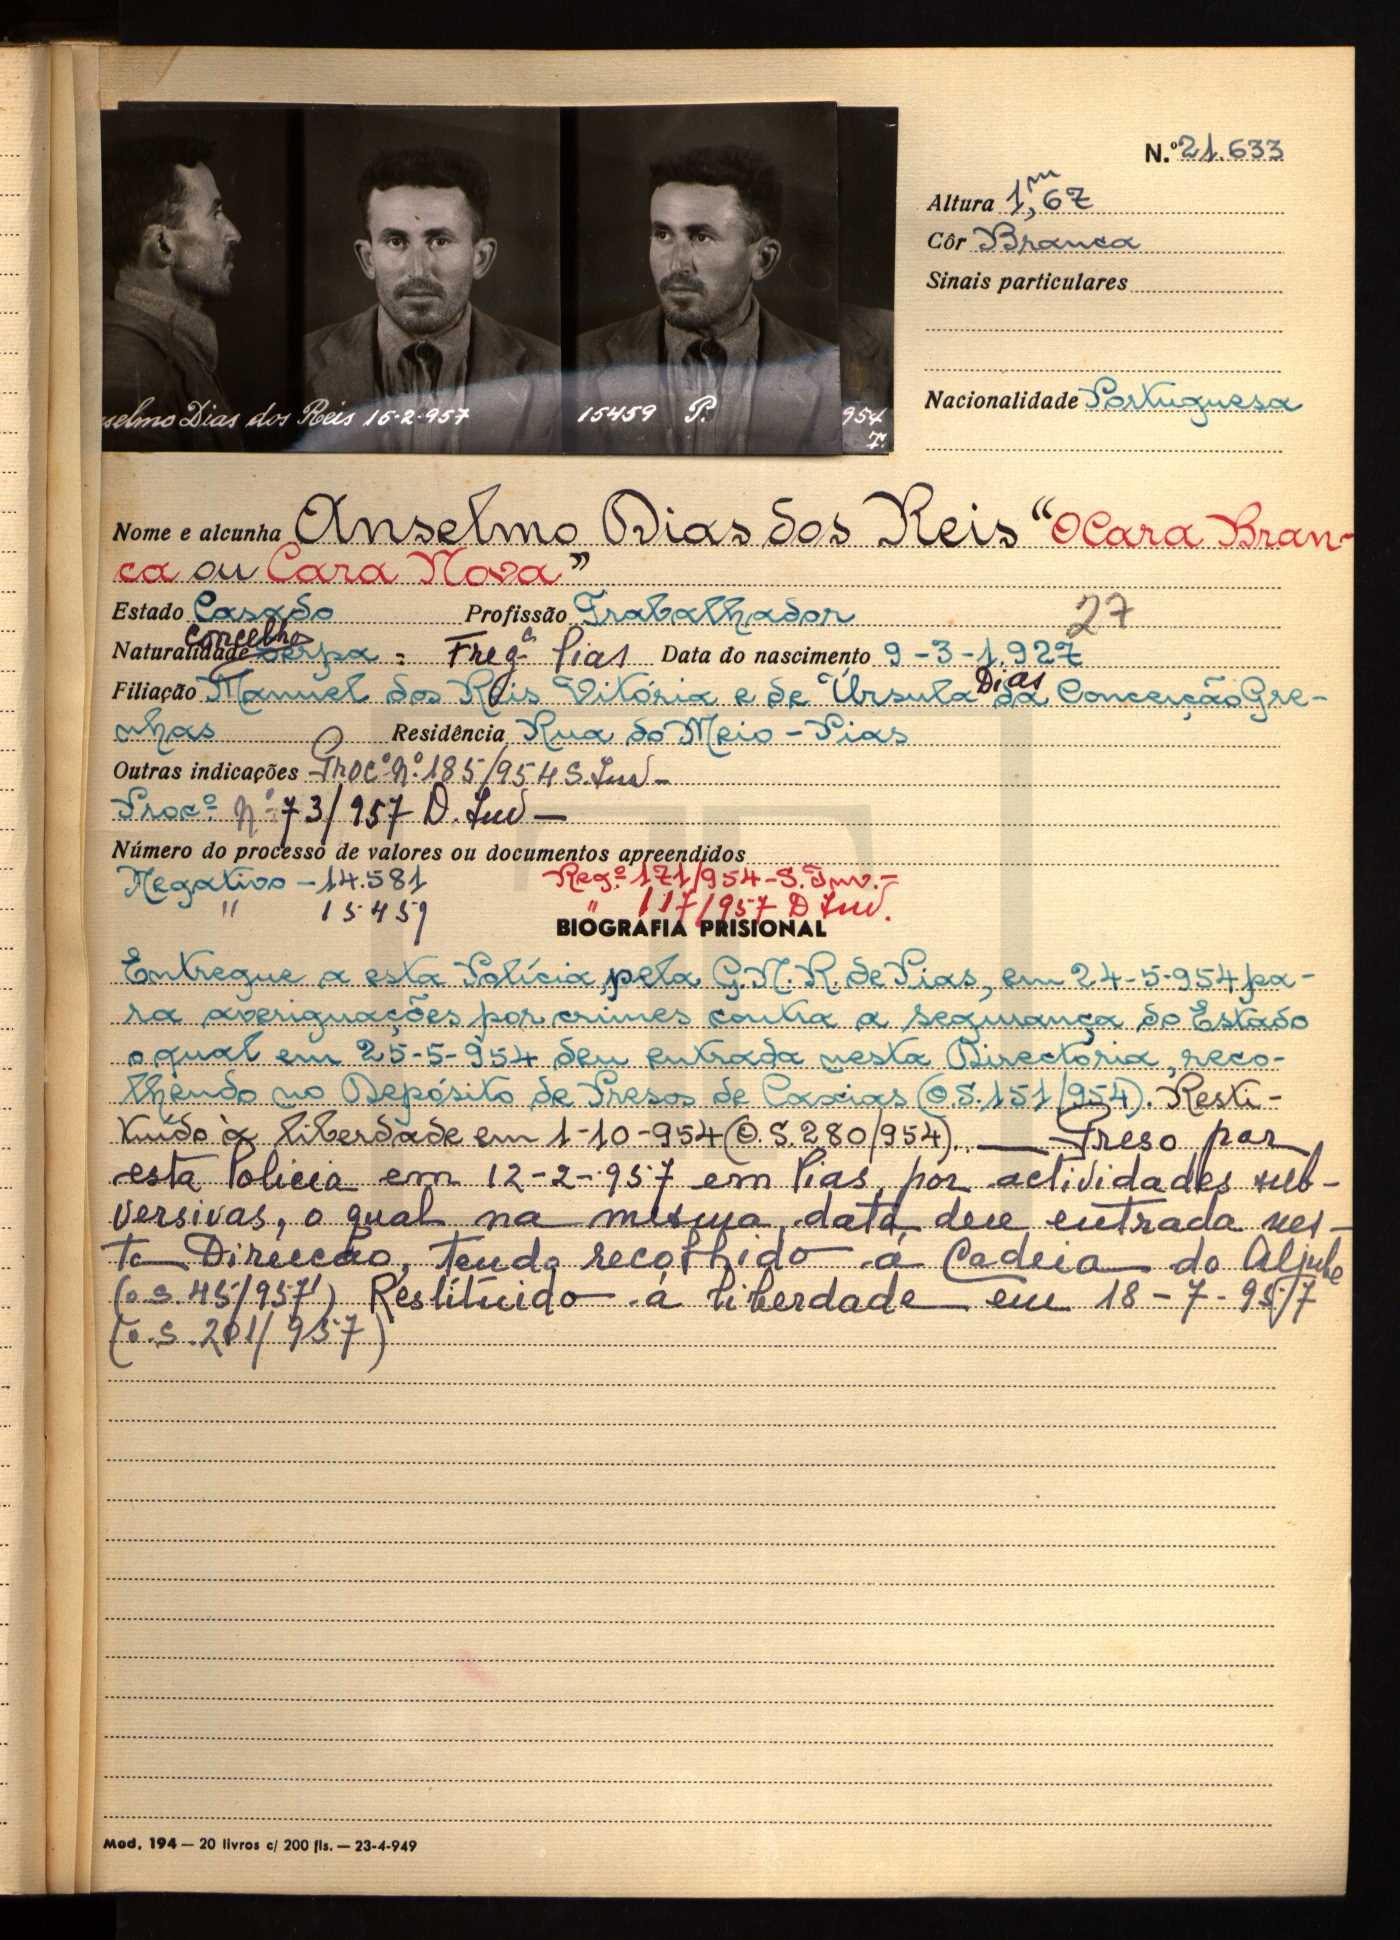 N.º 21.633
Altura 1,m67
Côr Branca
Sinais particulares
Nacionalidade Portuguesa
nselmo Dias dos Reis 15-2-957 15459 P.
954
7.
Nome e alcunha Anselmo Dias dos Reis "O Cara Bran-
ca ou Cara Nova"
Estado Casado Profissão Trabalhador 27
Concelho
Naturalidade Serpa = Freg.ª Pias Data do nascimento 9-3-1.927
Dias
Filiação Manuel dos Reis Vitória e de Úrsula da Conceição Gre-
nhas Residência Rua do Meio - Pias
Outras indicações Procº nº 185/954 S. Inv -
Procº nº 73/957 D. Inv —
Número do processo de valores ou documentos apreendidos
Negativo - 14.581 Reg.º 171/954-S. Inv.=
" 15459 " 117/957 D Inv.
BIOGRAFIA PRISIONAL
Entregue a esta Polícia, pela G.N.R. de Pias, em 24-5-954 pa-
ra averiguações por crimes contra a segurança do Estado
o qual em 25-5-954 deu entrada nesta Directoria, reco-
lhendo no Depósito de Presos de Caxias (O.S. 151/954). Resti-
tuído à liberdade em 1-10-954 (O.S. 280/954). — Preso por
esta Policia em 12-2-957 em Pias, por actividades sub-
versivas, o qual na mesma data deu entrada nes-
ta Direcção, tendo recolhido á Cadeia do Aljube
(o.s. 45/957) Restituido á liberdade em 18-7-957
(o.s. 201/957)
Mod. 194 — 20 livros c/ 200 fls. — 23-4-949